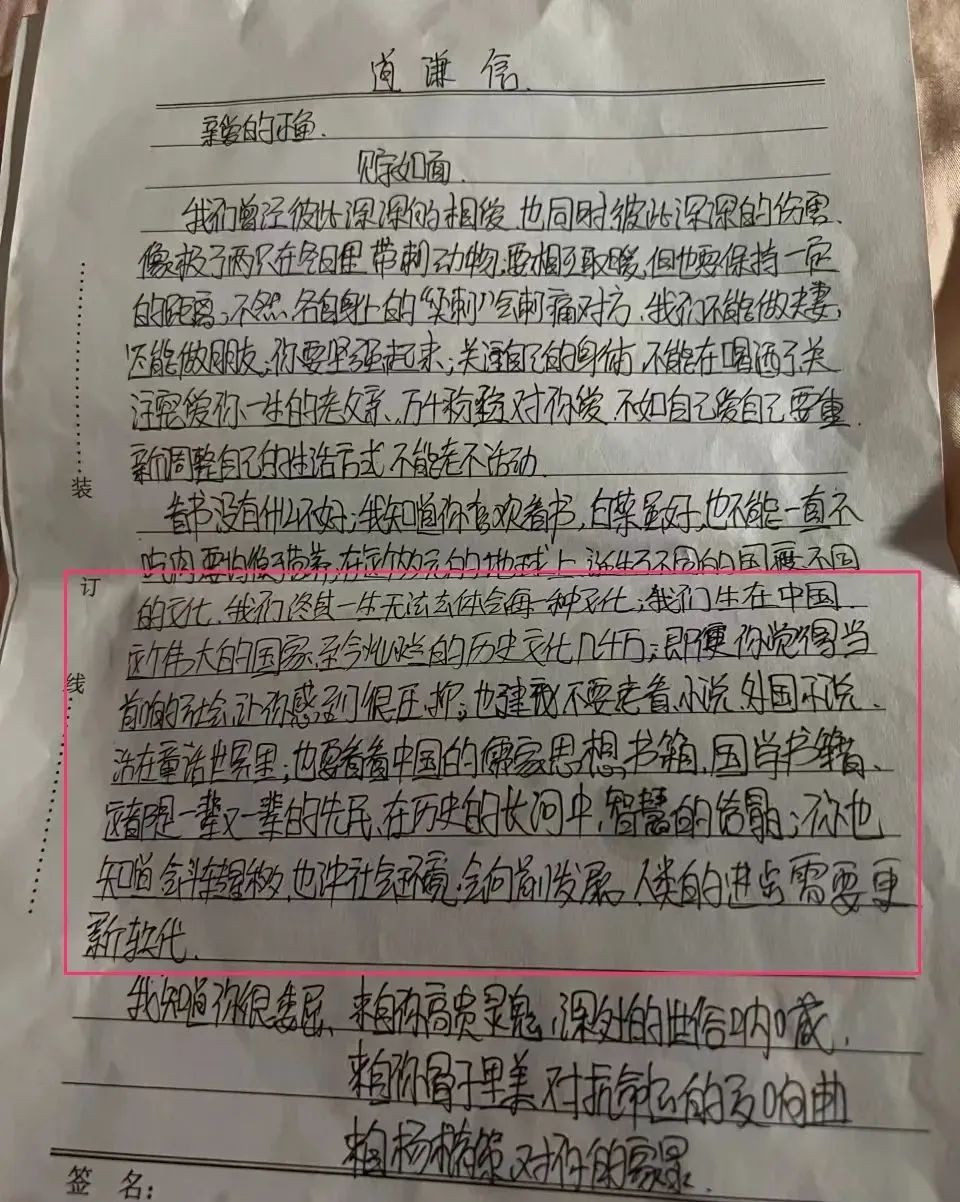 道谦信
亲爱的
见字如面.
我们曾经彼此深深的相爱,也同时,彼此深深的伤害.
像极了两只在冬日里,带刺动物;要相互取暖,但也要保持一定
的距离;不然,各自身上的“尖刺”会刺痛对方,我们不能做夫妻,
还能做朋友;你要坚强起来;关注自己的身体,不能在喝酒了关
注疼爱你一生的老父亲、万千粉丝对你爱,不如自己爱自己要重
新调整自己的生活方式不能老不活动.
看书没有什么不好;我知道你喜欢看书,白菜虽好,也不能一直不
吃肉要均衡营养,在这个的地球上,诞生不同的国度、不同
的文化,我们终其一生无法去体会每一种文化;我们生在中国.
这个伟大的国家,至今灿烂的历史文化几千万;即便你觉得当
前的社会,让你感到很压抑;也建议不要老看,小说,外国小说.
活在童话世界里;也要看看中国的儒家思想,书籍,国学书籍、
这都是一辈又一辈的先民,在历史的长河中,智慧的结晶;你也
知道,斗转星移,社会环境,会向前发展,人类的进步需要更
新软代.
我知道你很委屈、来自你高贵灵魂,深处的世俗呐喊,
来自你骨子里美,对抗命运的交响曲
来自杨对你的
装
订
线
签 名: